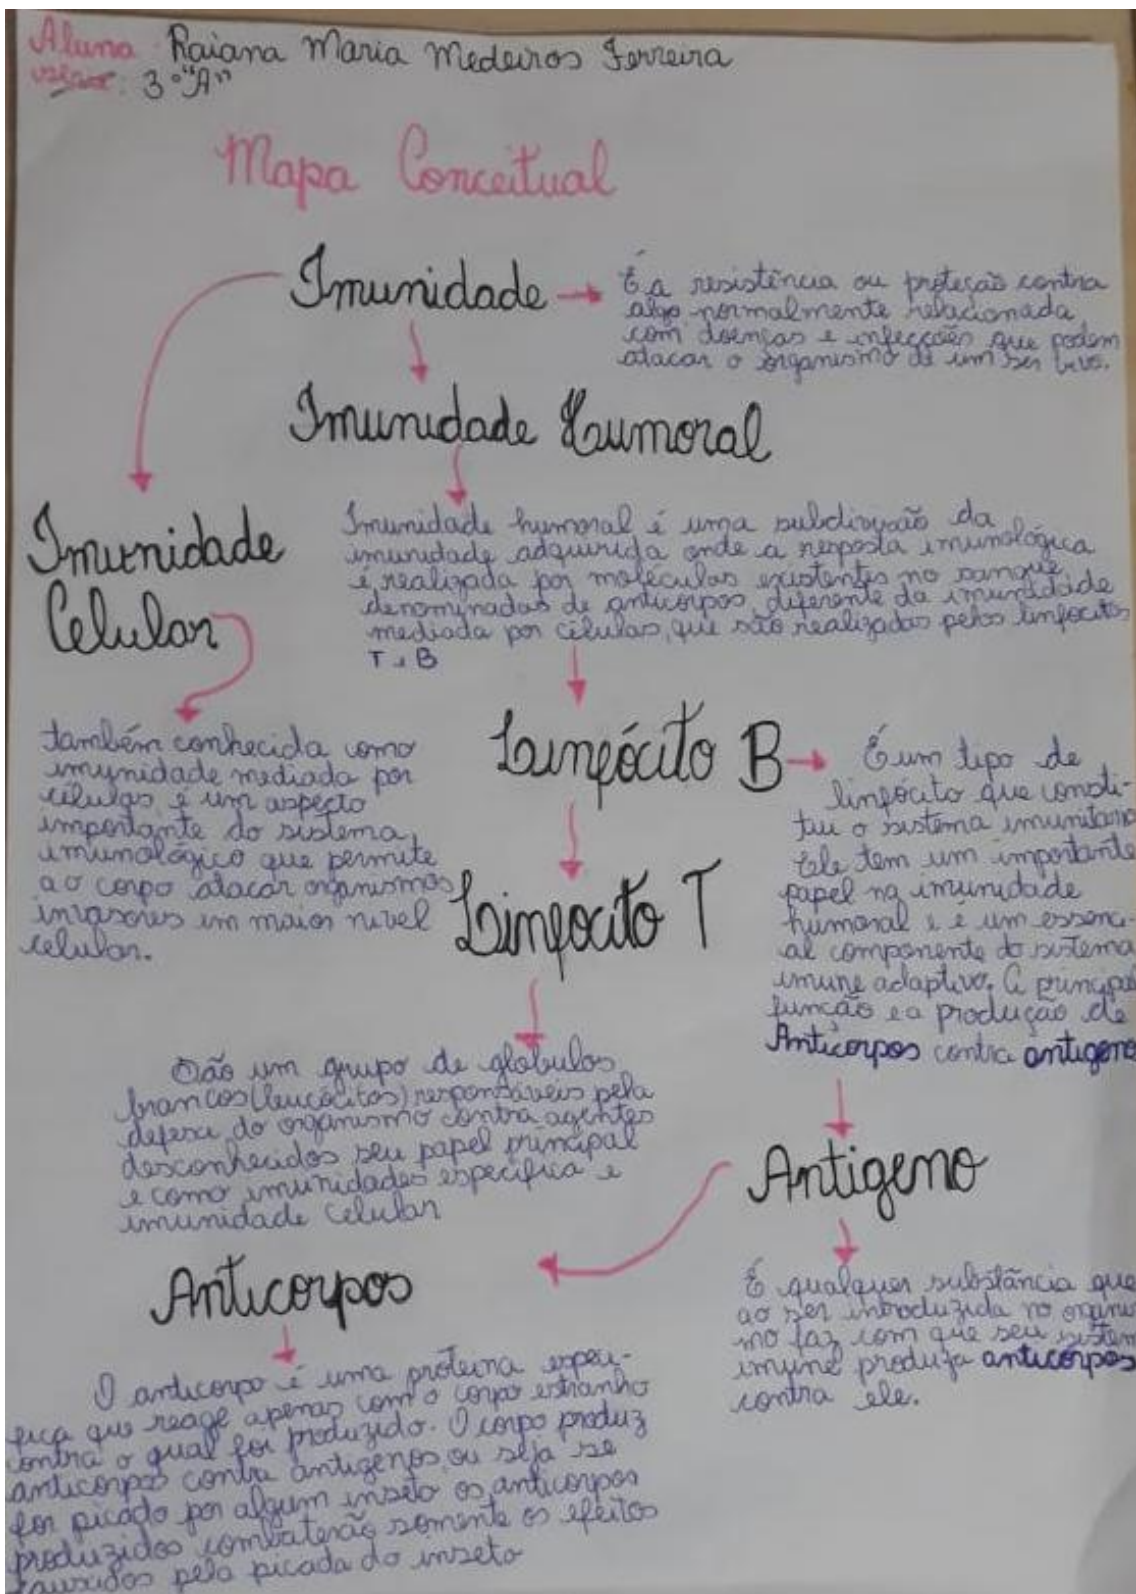 Aluna: Raiana Maria Medeiros Ferreira
3º "A"
Mapa Conceitual
Imunidade
É a resistência ou proteção contra
algo normalmente relacionada
com doenças e infecções que podem
atacar o organismo de um ser vivo.
Imunidade Humoral
Imunidade humoral é uma subdivisão da
imunidade adquirida onde a resposta imunológica
é realizada por moléculas existentes no sangue,
denominadas de anticorpos, diferente da imunidade
mediada por células, que são realizadas pelos linfocitos
T e B
Imunidade
Celular
também conhecida como
imunidade mediada por
células, é um aspecto
importante do sistema
imunológico que permite
ao corpo atacar organismos
invasores em maior nivel
celular.
Linfócito B
É um tipo de
linfócito que consti-
tui o sistema imunitario
Ele tem um importante
papel na imunidade
humoral e é um essenci-
al componente do sistema
imune adaptivo. A principal
função é a produção de
Anticorpos contra antigeno
Linfocito T
São um grupo de glóbulos
brancos (leucócitos) responsáveis pela
defesa do organismo contra agentes
desconhecidos seu papel principal
é como imunidades especifica e
imunidade celular
Antigeno
É qualquer substância que
ao ser introduzida no organis
mo faz com que seu sistem
imune produza anticorpos
contra ele.
Anticorpos
O anticorpo é uma proteina especi-
fica que reage apenas com o corpo estranho
contra o qual foi produzido. O corpo produz
anticorpos contra antigenos, ou seja se
for picado por algum inseto os anticorpos
produzidos combaterão somente os efeitos
causados pela picada do inseto